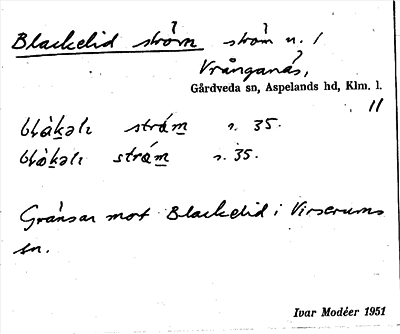 Blackelid ström ström n. 1
Vrånganäs,
Gårdveda sn, Aspelands hd, Klm. l.
11
strám n. 35.
strám n. 35.
Gränsar mot Blackelid i Virserums
sn.
Ivar Modéer 1951